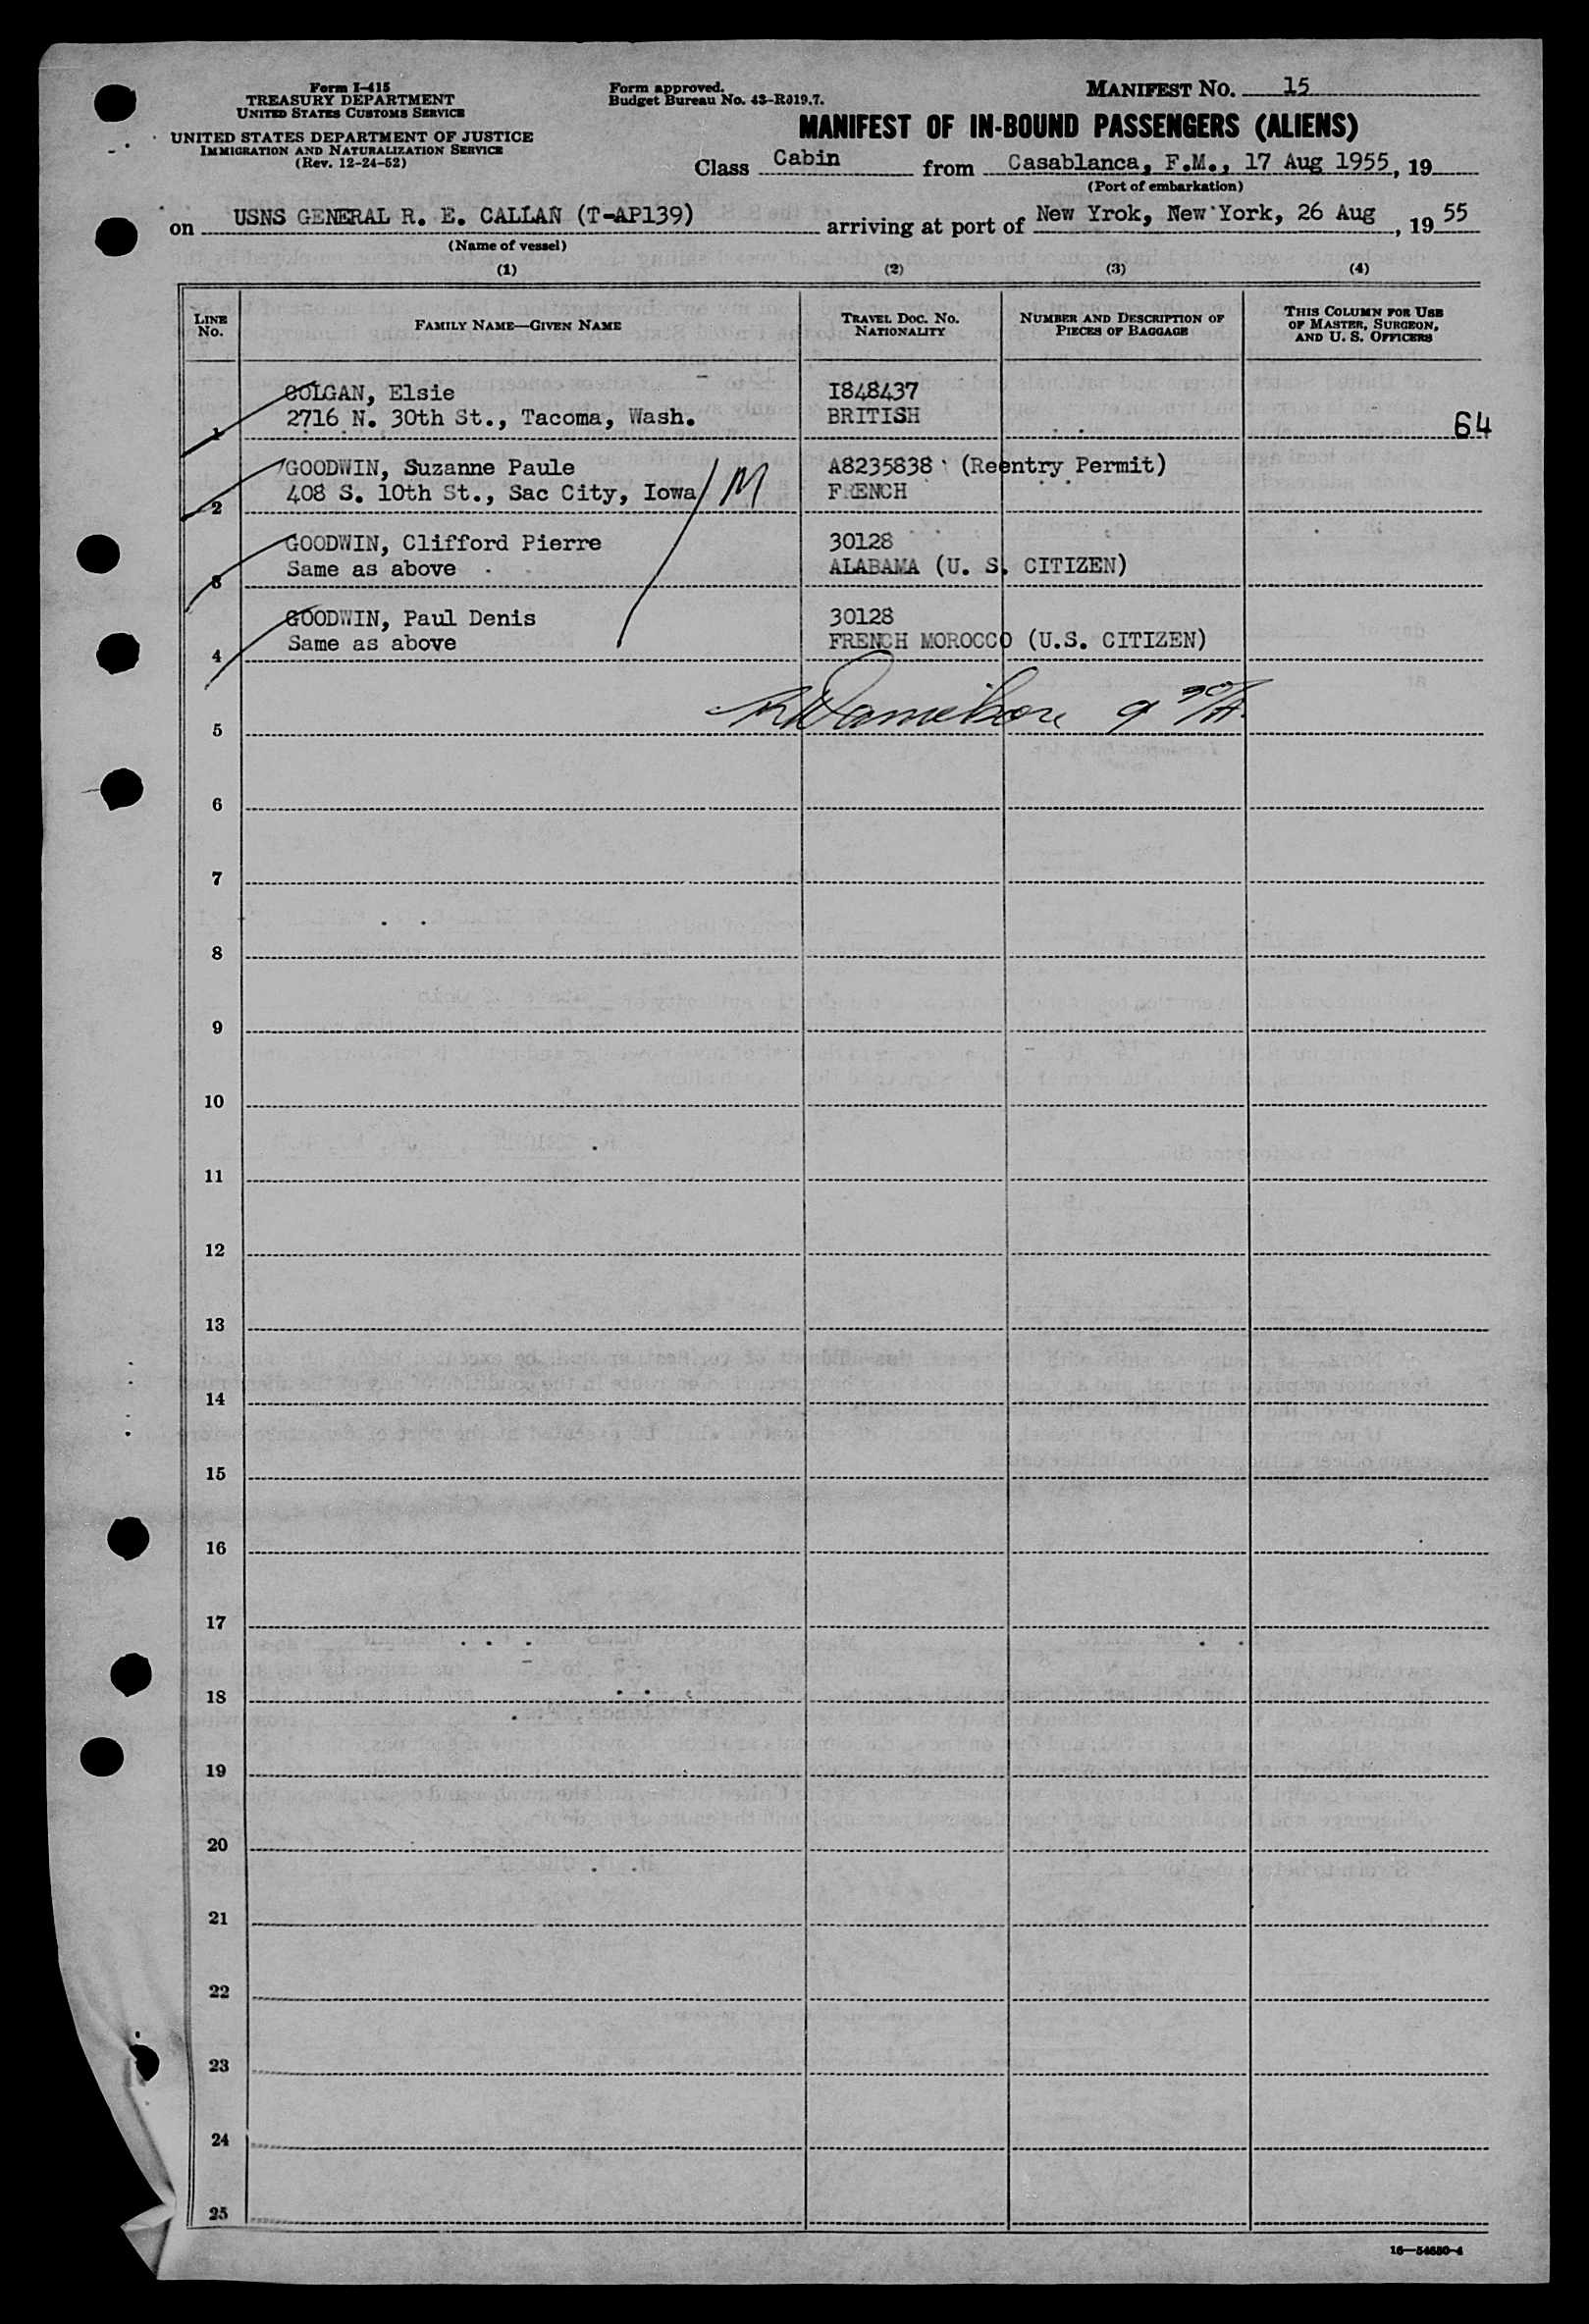 Form I-415
TREASURY DEPARTMENT
UNITED STATES CUSTOMS SERVICE
UNITED STATES DEPARTMENT OF JUSTICE
IMMIGRATION AND NATURALIZATION SERVICE
(Rev. 12-24-52)
Form approved.
Budget Bureau No. 43-R019.7.
MANIFEST NO. 15
MANIFEST OF IN-BOUND PASSENGERS (ALIENS)
Class Cabin from Casablanca, F.M., 17 Aug 1955, 19
(Port of embarkation)
on USNS GENERAL R. E. CALLAN (T-AP139) arriving at port of New Yrok, New York, 26 Aug, 19 55
(Name of vessel)
(1) (2) (3) (4)
LINE NO. FAMILY NAME—GIVEN NAME TRAVEL DOC. NO. NATIONALITY NUMBER AND DESCRIPTION OF PIECES OF BAGGAGE THIS COLUMN FOR USE OF MASTER, SURGEON, AND U. S. OFFICERS
COLGAN, Elsie I848437
1 2716 N. 30th St., Tacoma, Wash. BRITISH 64
GOODWIN, Suzanne Paule A8235838 (Reentry Permit)
2 408 S. 10th St., Sac City, Iowa M FRENCH
GOODWIN, Clifford Pierre 30128
3 Same as above ALABAMA (U. S. CITIZEN)
GOODWIN, Paul Denis 30128
4 Same as above FRENCH MOROCCO (U.S. CITIZEN)
5
6
7
8
9
10
11
12
13
14
15
16
17
18
19
20
21
22
23
24
25
16—54650-4